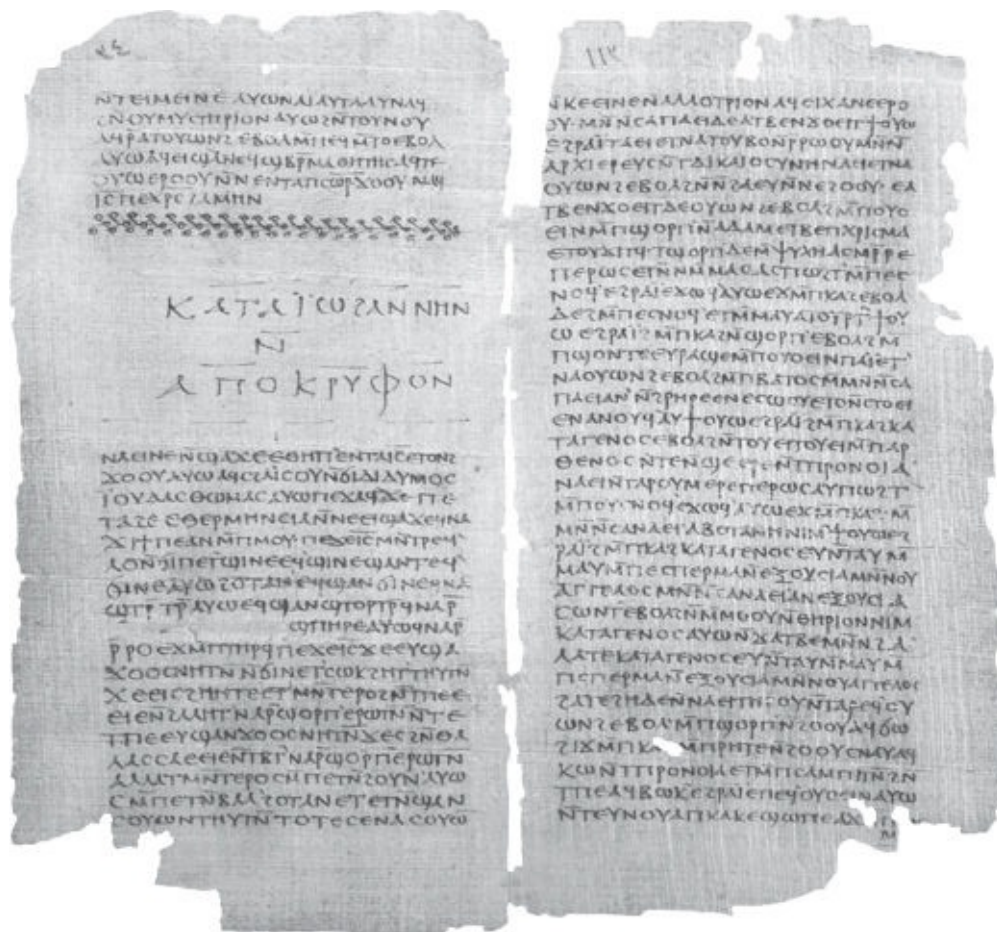 ⲛ̄ⲧⲉⲓⲙⲉⲓⲛⲉⲁⲩⲱⲛⲁⲓⲁⲩⲧⲁⲁⲩⲛⲁϥ
ϩⲛⲟⲩⲙⲩⲥⲧⲏⲣⲓⲟⲛⲁⲩⲱϩⲛ̄ⲧⲟⲩⲛⲟⲩ
ⲁϥⲣ̄ⲁⲧⲟⲩⲱⲛϩⲉⲃⲟⲗⲙ̄ⲡⲉϥⲙ̄ⲧⲟⲉⲃⲟⲗ
ⲁⲩⲱⲁϥⲉⲓϣⲁⲛⲉϥϣⲃⲣⲙⲁⲑⲏⲧⲏⲥⲁϥⲧⲉ
ⲟⲩⲱⲉⲣⲟⲟⲩⲛ̄ⲛⲉⲛⲧⲁⲡⲥⲱ̄ⲣϫⲟⲟⲩⲛⲁϥ
ⲓ̄ⲥ̄ⲡⲉⲭⲣ̄ⲥ̄ϩⲁⲙⲏⲛ
ⲕⲁⲧⲁⲓ̈ⲱϩⲁⲛⲛⲏⲛ
ⲛ̄
ⲁⲡⲟⲕⲣⲩⲫⲟⲛ
ⲛⲁⲉⲓⲛⲉⲛϣⲁϫⲉⲉⲑⲏⲡⲉⲛⲧⲁⲓ̄ⲥ̄ⲉⲧⲟⲛϩ
ϫⲟⲟⲩⲁⲩⲱⲁϥⲥϩⲁⲓ̈ⲥⲟⲩⲛ̄ϭⲓⲇⲓⲇⲩⲙⲟⲥ
ⲓ̈ⲟⲩⲇⲁⲥⲑⲱⲙⲁⲥⲁⲩⲱⲡⲉϫⲁϥϫⲉⲡⲉ
ⲧⲁϩⲉⲉⲑⲉⲣⲙⲏⲛⲉⲓⲁⲛ̄ⲛⲉⲉⲓϣⲁϫⲉϥⲛⲁ
ϫⲓϯⲡⲉⲁⲛⲙ̄ⲡⲙⲟⲩ·ⲡⲉϫⲉⲓ̄ⲥ̄ⲙⲛ̄ⲧⲣⲉϥ
ⲗⲟⲛ̄ϭⲓⲡⲉⲧϣⲓⲛⲉⲉϥϣⲓⲛⲉϣⲁⲛⲧⲉϥ
ϭⲓⲛⲉⲁⲩⲱϩⲟⲧⲁⲛⲉϥϣⲁⲛϭⲓⲛⲉϥⲛⲁ
ϣⲧⲣ̄ⲧⲣ̄ⲁⲩⲱⲉϥϣⲁⲛϣⲧⲟⲣⲧⲣ̄ϥⲛⲁⲣ̄
ϣⲡⲏⲣⲉⲁⲩⲱϥⲛⲁⲣ̄
ⲣ̄ⲣⲟⲉϫⲙ̄ⲡⲧⲏⲣϥ̄ⲡⲉϫⲉⲓ̄ⲥ̄ϫⲉⲉⲩϣⲁ
ϫⲟⲟⲥⲛⲏⲧⲛ̄ⲛ̄ϭⲓⲛⲉⲧⲥⲱⲕϩⲏⲧⲑⲏⲩⲧⲛ̄
ϫⲉⲉⲓⲥϩⲏⲏⲧⲉⲉⲧⲙⲛ̄ⲧⲉⲣⲟϩⲛ̄ⲧⲡⲉⲉ
ⲉⲓⲉⲛ̄ϩⲁⲗⲏⲧⲛⲁⲣ̄ϣⲟⲣⲡⲉⲣⲱⲧⲛ̄ⲛ̄ⲧⲉ
ⲧⲡⲉⲉⲩϣⲁⲛϫⲟⲟⲥⲛⲏⲧⲛ̄ϫⲉⲥϩⲛ̄ⲑⲁ
ⲗⲁⲥⲥⲁⲉⲉⲓⲉⲛ̄ⲧⲃ̄ⲧⲛⲁⲣ̄ϣⲟⲣⲡⲉⲣⲱⲧⲛ̄
ⲁⲗⲗⲁⲧⲙⲛ̄ⲧⲉⲣⲟⲥⲙ̄ⲡⲉⲧⲛ̄ϩⲟⲩⲛⲁⲩⲱ
ⲥⲙ̄ⲡⲉⲧⲛ̄ⲃⲁⲗϩⲟⲧⲁⲛⲉⲧⲉⲧⲛ̄ϣⲁⲛ
ⲥⲟⲩⲱⲛⲧⲏⲩⲧⲛ̄ⲧⲟⲧⲉⲥⲉⲛⲁⲥⲟⲩⲱ
ⲛⲕⲉⲉⲓⲛⲉⲛⲁⲗⲗⲟⲧⲣⲓⲟⲛⲁϥⲉⲓϫⲁⲛⲉⲉⲣⲟ
ⲟⲩ·ⲙⲛ̄ⲛ̄ⲥⲁⲡⲁⲉⲓⲇⲉⲁⲧⲃⲉⲛϫⲟⲉⲓⲧϯⲟⲩⲱ
ⲉϩⲣⲁⲓ̈ⲧⲁⲉⲓⲉⲧⲛⲁⲧⲟⲩⲃⲟⲛ̄ⲣ̄ⲣⲱⲟⲩⲙⲛ̄ⲛ
ⲁⲣⲭⲓⲉⲣⲉⲩⲥⲛ̄ⲧⲇⲓⲕⲁⲓⲟⲥⲩⲛⲏⲛⲁⲉⲓⲉⲧⲛⲁ
ⲟⲩⲱⲛϩⲉⲃⲟⲗϩⲛ̄ⲛ̄ϩⲁⲉⲩⲛ̄ⲛⲉϩⲟⲟⲩ·ⲉⲁ
ⲧⲃⲉⲛϫⲟⲉⲓⲧⲇⲉⲟⲩⲱⲛϩⲉⲃⲟⲗϩⲙ̄ⲡⲟⲩⲟ
ⲉⲓⲛⲙ̄ⲡϣⲟⲣⲡⲛ̄ⲁⲇⲁⲙⲉⲧⲃⲉⲡⲭⲣⲓⲥⲙⲁ
ⲉⲧⲟⲩϫⲓⲧϥ·ⲧϣⲟⲣⲡⲇⲉⲙ̄ⲯⲩⲭⲏⲁⲥⲙⲣ̄ⲣⲉ
ⲡⲉⲣⲱⲥⲉⲧⲛ̄ⲙⲙⲁⲥⲁⲥⲡⲱϩⲧⲙ̄ⲡⲉⲥ
ⲛⲟϥⲉϩⲣⲁⲓ̈ⲉϫⲱϥⲁⲩⲱⲉϫⲙ̄ⲡⲕⲁϩⲉⲃⲟⲗ
ⲇⲉϩⲙ̄ⲡⲉⲥⲛⲟϥⲉⲧⲙ̄ⲙⲁⲩⲁⲟⲩⲣⲧϯⲟⲩ
ⲱⲉϩⲣⲁⲓ̈ϩⲙ̄ⲡⲕⲁϩⲛ̄ϣⲟⲣⲡⲉⲃⲟⲗϩⲙ̄
ⲡϣⲟⲛⲧⲉⲉⲩⲣⲁϣⲉⲙ̄ⲡⲟⲩⲟⲉⲓⲛⲡⲁⲓ̈ⲉⲧ
ⲛⲁⲟⲩⲱⲛϩⲉⲃⲟⲗϩⲙ̄ⲡⲃⲁⲧⲟⲥⲙⲙⲛ̄ⲛ̄ⲥⲁ
ⲡⲁⲉⲓⲁⲛ̄ϩⲣⲏⲣⲉⲉⲛⲉⲥⲱⲟⲩⲉⲧⲟⲛ̄ⲥⲧⲟⲉⲓ
ⲉⲛⲁⲛⲟⲩϥⲁⲩϯⲟⲩⲱⲉϩⲣⲁⲓ̈ϩⲙ̄ⲡⲕⲁϩⲕⲁ
ⲧⲁⲅⲉⲛⲟⲥⲉⲃⲟⲗϩⲛ̄ⲧⲟⲩⲉⲓⲧⲟⲩⲉⲓⲙ̄ⲡⲁⲣ
ⲑⲉⲛⲟⲥⲛ̄ⲧⲉⲛ̄ϣⲉⲉⲣⲉⲛ̄ⲧⲡⲣⲟⲛⲟⲓⲁ·
ⲛⲁⲉⲓⲛ̄ⲧⲁⲣⲟⲩⲙⲉⲣⲉⲡⲉⲣⲱⲥⲁⲩⲡⲱϩⲧ
ⲙ̄ⲡⲟⲩⲥⲛⲟϥⲉϫⲱϥⲁⲩⲱⲉϫⲙ̄ⲡⲕⲁϩ·ⲙ̄
ⲙⲛ̄ⲛ̄ⲥⲁⲛⲁⲉⲓⲁⲃⲟⲧⲁⲛⲏⲛⲓⲙϯⲟⲩⲱⲉϩ
ⲣⲁⲓ̈ϩⲙ̄ⲡⲕⲁϩⲕⲁⲧⲁⲅⲉⲛⲟⲥⲉⲩⲛ̄ⲧⲁⲩⲙ̄
ⲙⲁⲩⲙ̄ⲡⲉⲥⲡⲉⲣⲙⲁⲛ̄ⲉⲝⲟⲩⲥⲓⲁⲙⲛ̄ⲛⲟⲩ
ⲁⲅⲅⲉⲗⲟⲥⲙⲛ̄ⲛ̄ⲥⲁⲛⲁⲉⲓⲁⲛⲉⲝⲟⲩⲥⲓⲁ
ⲥⲱⲛⲧⲉⲃⲟⲗϩⲛ̄ⲙⲙⲟⲟⲩⲛ̄ⲑⲏⲣⲓⲟⲛⲛⲓⲙ
ⲕⲁⲧⲁⲅⲉⲛⲟⲥⲁⲩⲱⲛ̄ϫⲁⲧⲃⲉⲙⲛ̄ⲛ̄ϩⲁ
ⲗⲁⲧⲉⲕⲁⲧⲁⲅⲉⲛⲟⲥⲉⲩⲛ̄ⲧⲁⲩⲙ̄ⲙⲁⲩⲙ̄
ⲡⲥⲡⲉⲣⲙⲁⲛ̄ⲉⲝⲟⲩⲥⲓⲁⲙⲛ̄ⲛⲟⲩⲁⲅⲅⲉⲗⲟⲥ
ϩⲁⲧⲉϩⲏⲇⲉⲛ̄ⲛⲁⲉⲓⲧⲏⲣⲟⲩⲛ̄ⲧⲁⲣⲉϥⲟⲩ
ⲱⲛϩⲉⲃⲟⲗⲙ̄ⲡϣⲟⲣⲡⲛ̄ϩⲟⲟⲩⲁϥϭⲱ
ϩⲓϫⲙ̄ⲡⲕⲁϩⲙ̄ⲡⲣⲏⲧⲉⲛ̄ϩⲟⲟⲩⲥⲛⲁⲩⲁϥ
ⲕⲱⲛ̄ⲧⲡⲣⲟⲛⲟⲓⲁⲉⲧⲙ̄ⲡⲥⲁⲙⲡⲓⲧⲛ̄ϩⲛ̄
ⲧⲡⲉⲁϥⲃⲱⲕⲉϩⲣⲁⲓ̈ⲉⲡⲉϥⲟⲩⲟⲉⲓⲛⲁⲩⲱ
ⲛ̄ⲧⲉⲩⲛⲟⲩⲁⲡⲕⲁⲕⲉϣⲱⲡⲉ